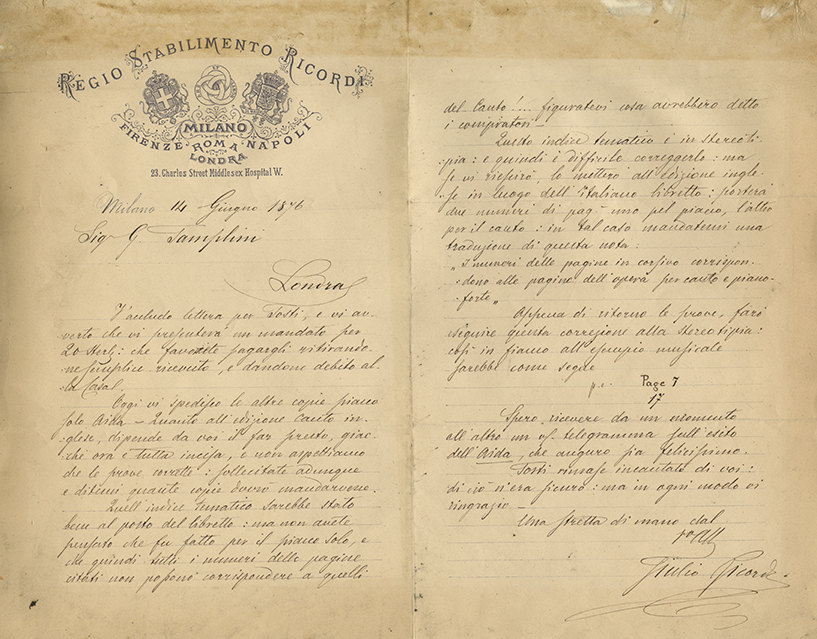 REGIO STABILIMENTO RICORDI
MILANO
FIRENZE-ROMA-NAPOLI
LONDRA
23. Charles Street Middlesex Hospital W.
Milano 14 Giugno 1876
Sigr G. Tamplini
Londra
V'accludo lettera per Tosti, e vi av-
verto che vi presenterà un mandato per
20 Sterl: che favorite pagargli ritirando-
ne semplice ricevuta, e dandone debito al-
la Casa.
Oggi vi spedisco le altre copie piano
solo Aida - Quanto all'edizione canto in-
glese, dipende da voi il far presto, giac-
chè ora è tutta incisa, e non aspettiamo
che le prove corrette: sollecitate adunque
e ditemi quante copie dovrò mandarvene.
Quell'indice tematico sarebbe stato
bene al posto del libretto: ma non avete
pensato che fu fatto per il piano solo, e
che quindi tutti i numeri delle pagine
citati non possono corrispondere a quelli
del Canto!... figuratevi cosa avrebbero detto
i compratori -
Questo indice tematico è in stereoti-
pia: e quindi è difficile correggerlo: ma
se vi riescirò, lo metterò all'edizione ingle-
se in luogo dell'italiano libretto: porterà
due numeri di pag- uno pel piano, l'altro
per il canto: in tal caso mandatemi una
traduzione di questa nota:
"I numeri delle pagine in corsivo corrispon-
dono alle pagine dell'opera per canto e piano-
forte"
Appena di ritorno le prove, farò
eseguire questa correzione alla stereotipia:
così in fianco all'esempio musicale
sarebbe come segue
p.e. Page 7
17
Spero ricevere da un momento
all'altro un vs. telegramma sull'esito
dell'Aida, che auguro sia felicissimo.
Tosti rimase incantato di voi:
di ciò n'era sicuro: ma in ogni modo vi
ringrazio -
Una stretta di mano dal
Giulio Ricordi